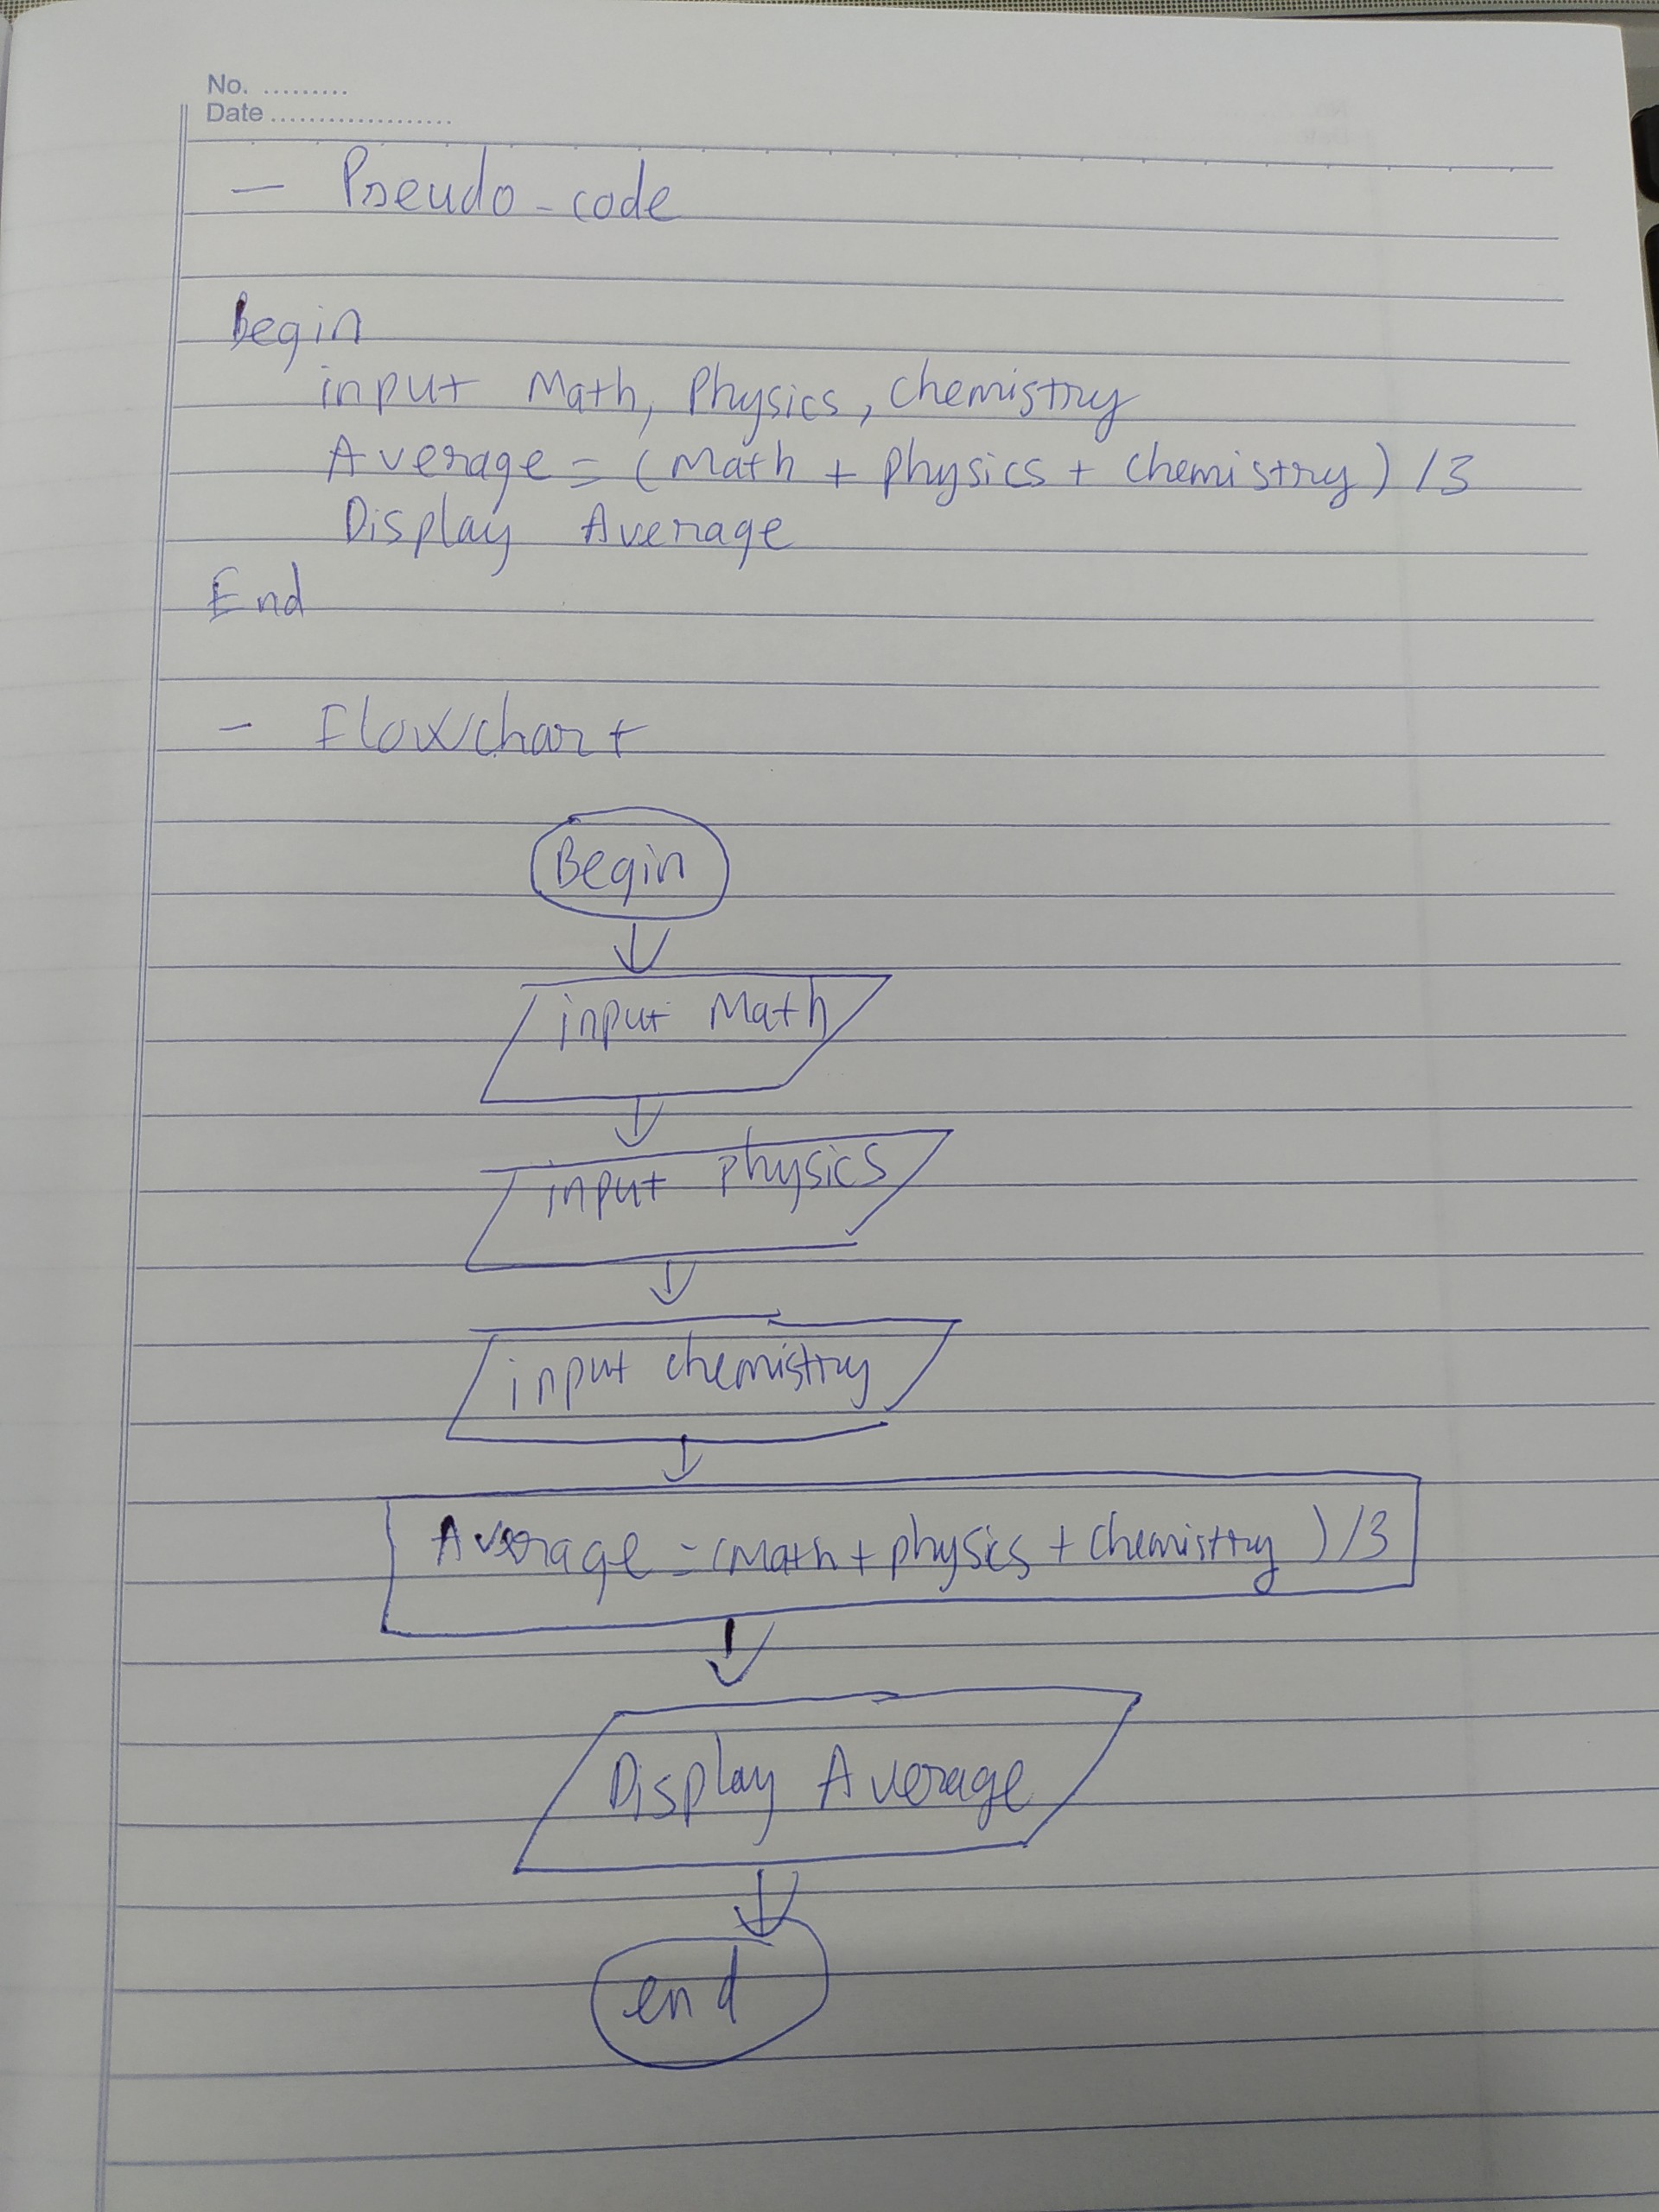 No. .........
Date ...................
- Pseudo-code
Begin
input Math, Physics, Chemistry
Average = (Math + Physics + Chemistry) / 3
Display Average
End
- Flowchart
Begin
input Math
input physics
input chemistry
Average = (Math + physics + chemistry) / 3
Display Average
end